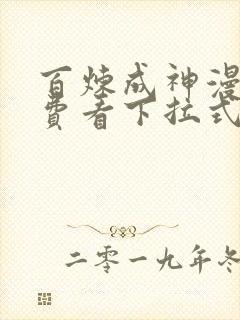 百炼成神漫
费看下拉式
二零一九年冬